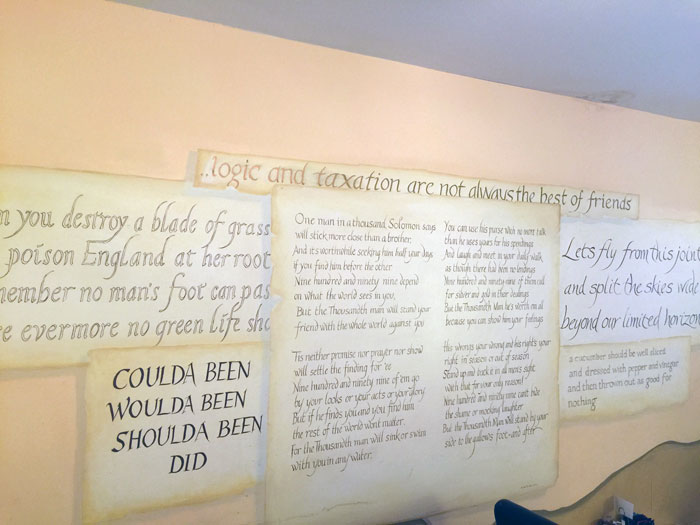 ..logic and taxation are not always the best of friends
n you destroy a blade of grass
poison England at her root
member no man's foot can pas
e evermore no green life sho
COULDA BEEN
WOULDA BEEN
SHOULDA BEEN
DID
One man in a thousand, Solomon says
will stick more close than a brother.
And it's worthwhile seeking him half your days
if you find him before the other.
Nine hundred and ninety nine depend
on what the world sees in you,
But the Thousandth man will stand your
friend with the whole world against you
'Tis neither promise nor prayer nor show
will settle the finding for 'ee
Nine hundred and ninety nine of 'em go
by your looks or your acts or your glory
But if he finds you and you find him
the rest of the world won't matter.
For the Thousandth man will sink or swim
with you in any water.
You can use his purse with no more talk
than he uses yours for his spendings
And laugh and meet in your daily walk,
as though there had been no lendings
Nine hundred and ninety nine of them call
for silver and gold in their dealings
But the Thousandth Man he's worth 'em all
because you can show him your feelings
His wrong's your wrong and his right's your
right in season or out of season
Stand up and back it in all men's sight
with that for your only reason!
Nine hundred and ninety nine can't bide
the shame or mocking laughter
But the Thousandth Man will stand by your
side to the gallows foot-and after
Lets fly from this joint
and split the skies wide
beyond our limited horizon
a cucumber should be well sliced
and dressed with pepper and vinegar
and then thrown out as good for
nothing